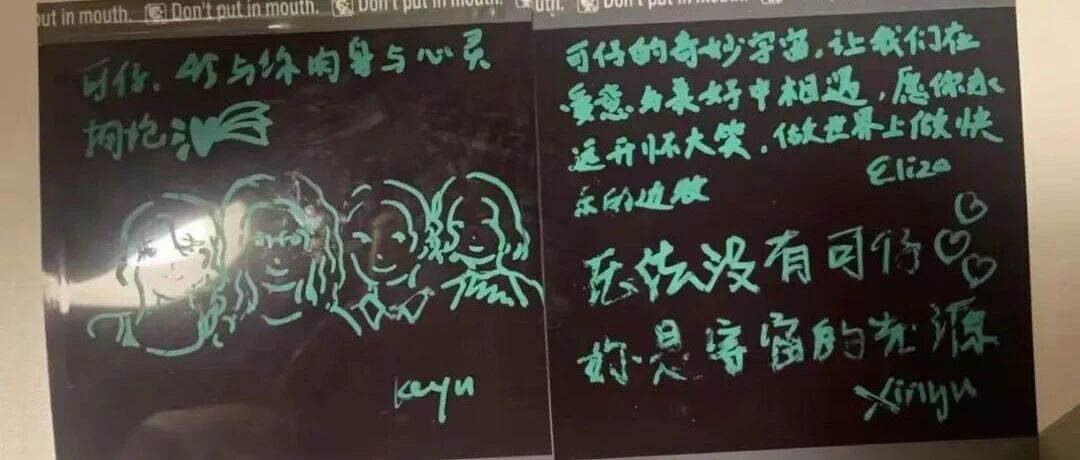 out in mouth. Don't put in mouth. Don't put in mouth.
可仔、与你肉身与心灵
拥抱
Kayu
uth. Don't put in mouth.
可仔的奇妙宇宙,让我们在
爱意与美好中相遇,愿你永
远开怀大笑,做世界上做快
乐的边牧
Eliza
无法没有可仔
你是宇宙的光源
Xinyu